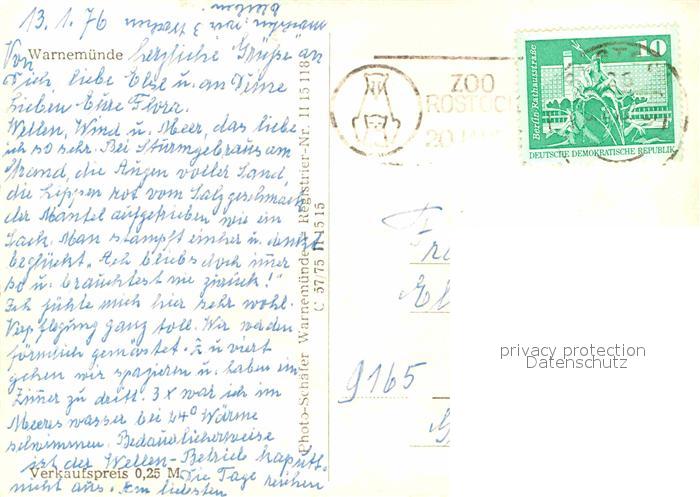 13.1.76
Warnemünde herzliche Grüße an
Von
Dich, liebe Else u. an Deine
lieben Eure Flora.
Wellen, Wind u. Meer, das liebe
ich so sehr. Bei Sturmgebraus am
Strand, die Augen voller Sand,
die Lippen rot vom Salzgeschmack
der Mantel aufgetrieben wie ein
Sack. Man stampft einher u. denkt
beglückt "Ach bliebs doch imer
so u. brauchtest nie zurück!"
Ich fühle mich hier sehr wohl.
Verpflegung ganz toll. Wir werden
förmlich gemästet. Zu viert
gehen wir spazieren u. haben ein
Zimer zu dritt. 3x war ich im
Meereswasser bei 24° Wärme
schwimmen. Bedauerlicherweise
ist der Wellen-Betrieb kaputt.
Verkaufspreis 0,25 M
Die Tage reichen
nicht aus. Am liebsten
Photo-Schäfer Warnemünde — Registrier-Nr. 1115118
C 57/75 II 15 15
ZOO
ROSTOCK
20
10
Berlin, Rathausstraße
DEUTSCHE DEMOKRATISCHE REPUBLIK
9165
privacy protection
Datenschutz